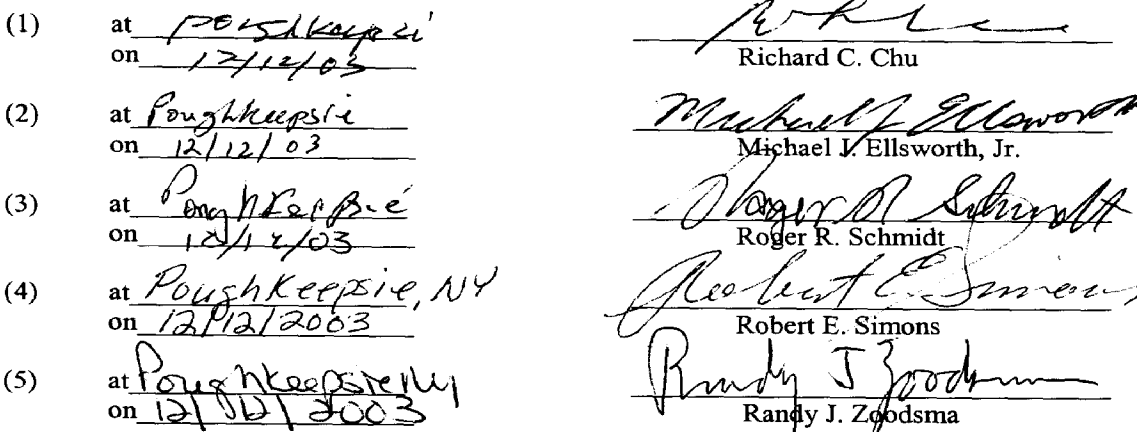 (1) at Poughkeepsie
on 12/12/03
Richard C. Chu
(2) at Poughkeepsie
on 12/12/03
Michael J. Ellsworth
Michael J. Ellsworth, Jr.
(3) at Poughkeepsie
on 12/12/03
Roger R Schmidt
Roger R. Schmidt
(4) at Poughkeepsie, NY
on 12/12/2003
Robert E Simons
Robert E. Simons
(5) at Poughkeepsie NY
on 12/12/2003
Randy J Zoodsma
Randy J. Zoodsma